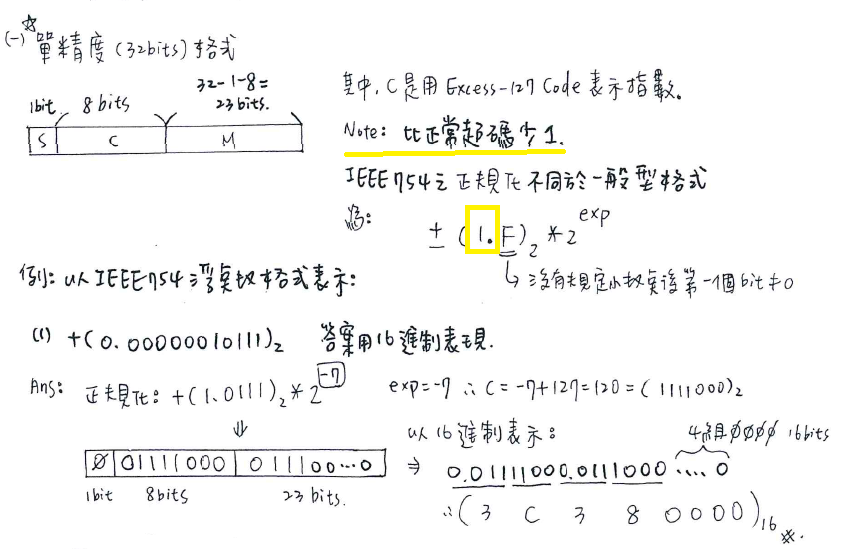 (一)☆ 單精度(32bits)格式
32-1-8=
1bit 8 bits 23 bits.
S C M
其中, C是用 Excess-127 Code 表示指數。
Note: 比正常超碼少1.
IEEE754之正規化不同於一般型格式
為:
± (1.F)₂ * 2^exp
↳ 沒有規定小數点後第一個bit≠0
例: 以IEEE754浮点數格式表示:
(1) +(0.00000010111)₂ 答案用16進制表現.
Ans: 正規化: +(1.0111)₂ * 2^-7 exp=-7 ∴ C=-7+127=120=(1111000)₂
⇓
0 01111000 011100...0
1bit 8bits 23 bits.
以16進制表示: 4組0000 16bits
⇒ 0.01111000.0111000 .... 0
∴(3 C 3 8 0000)₁₆ ※.